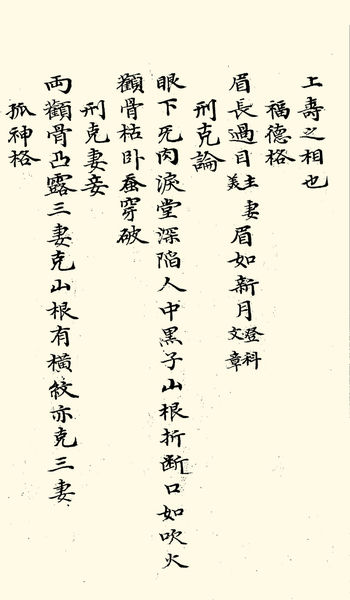 上壽之相也
福德格
眉長過目主美妻眉如新月登科文章
刑克論
眼下死肉淚堂深陷人中黒子山根折斷口如吹火
顴骨枯卧蚕穿破
刑克妻妾
両顴骨凸露三妻克山根有橫紋亦克三妻
孤神格